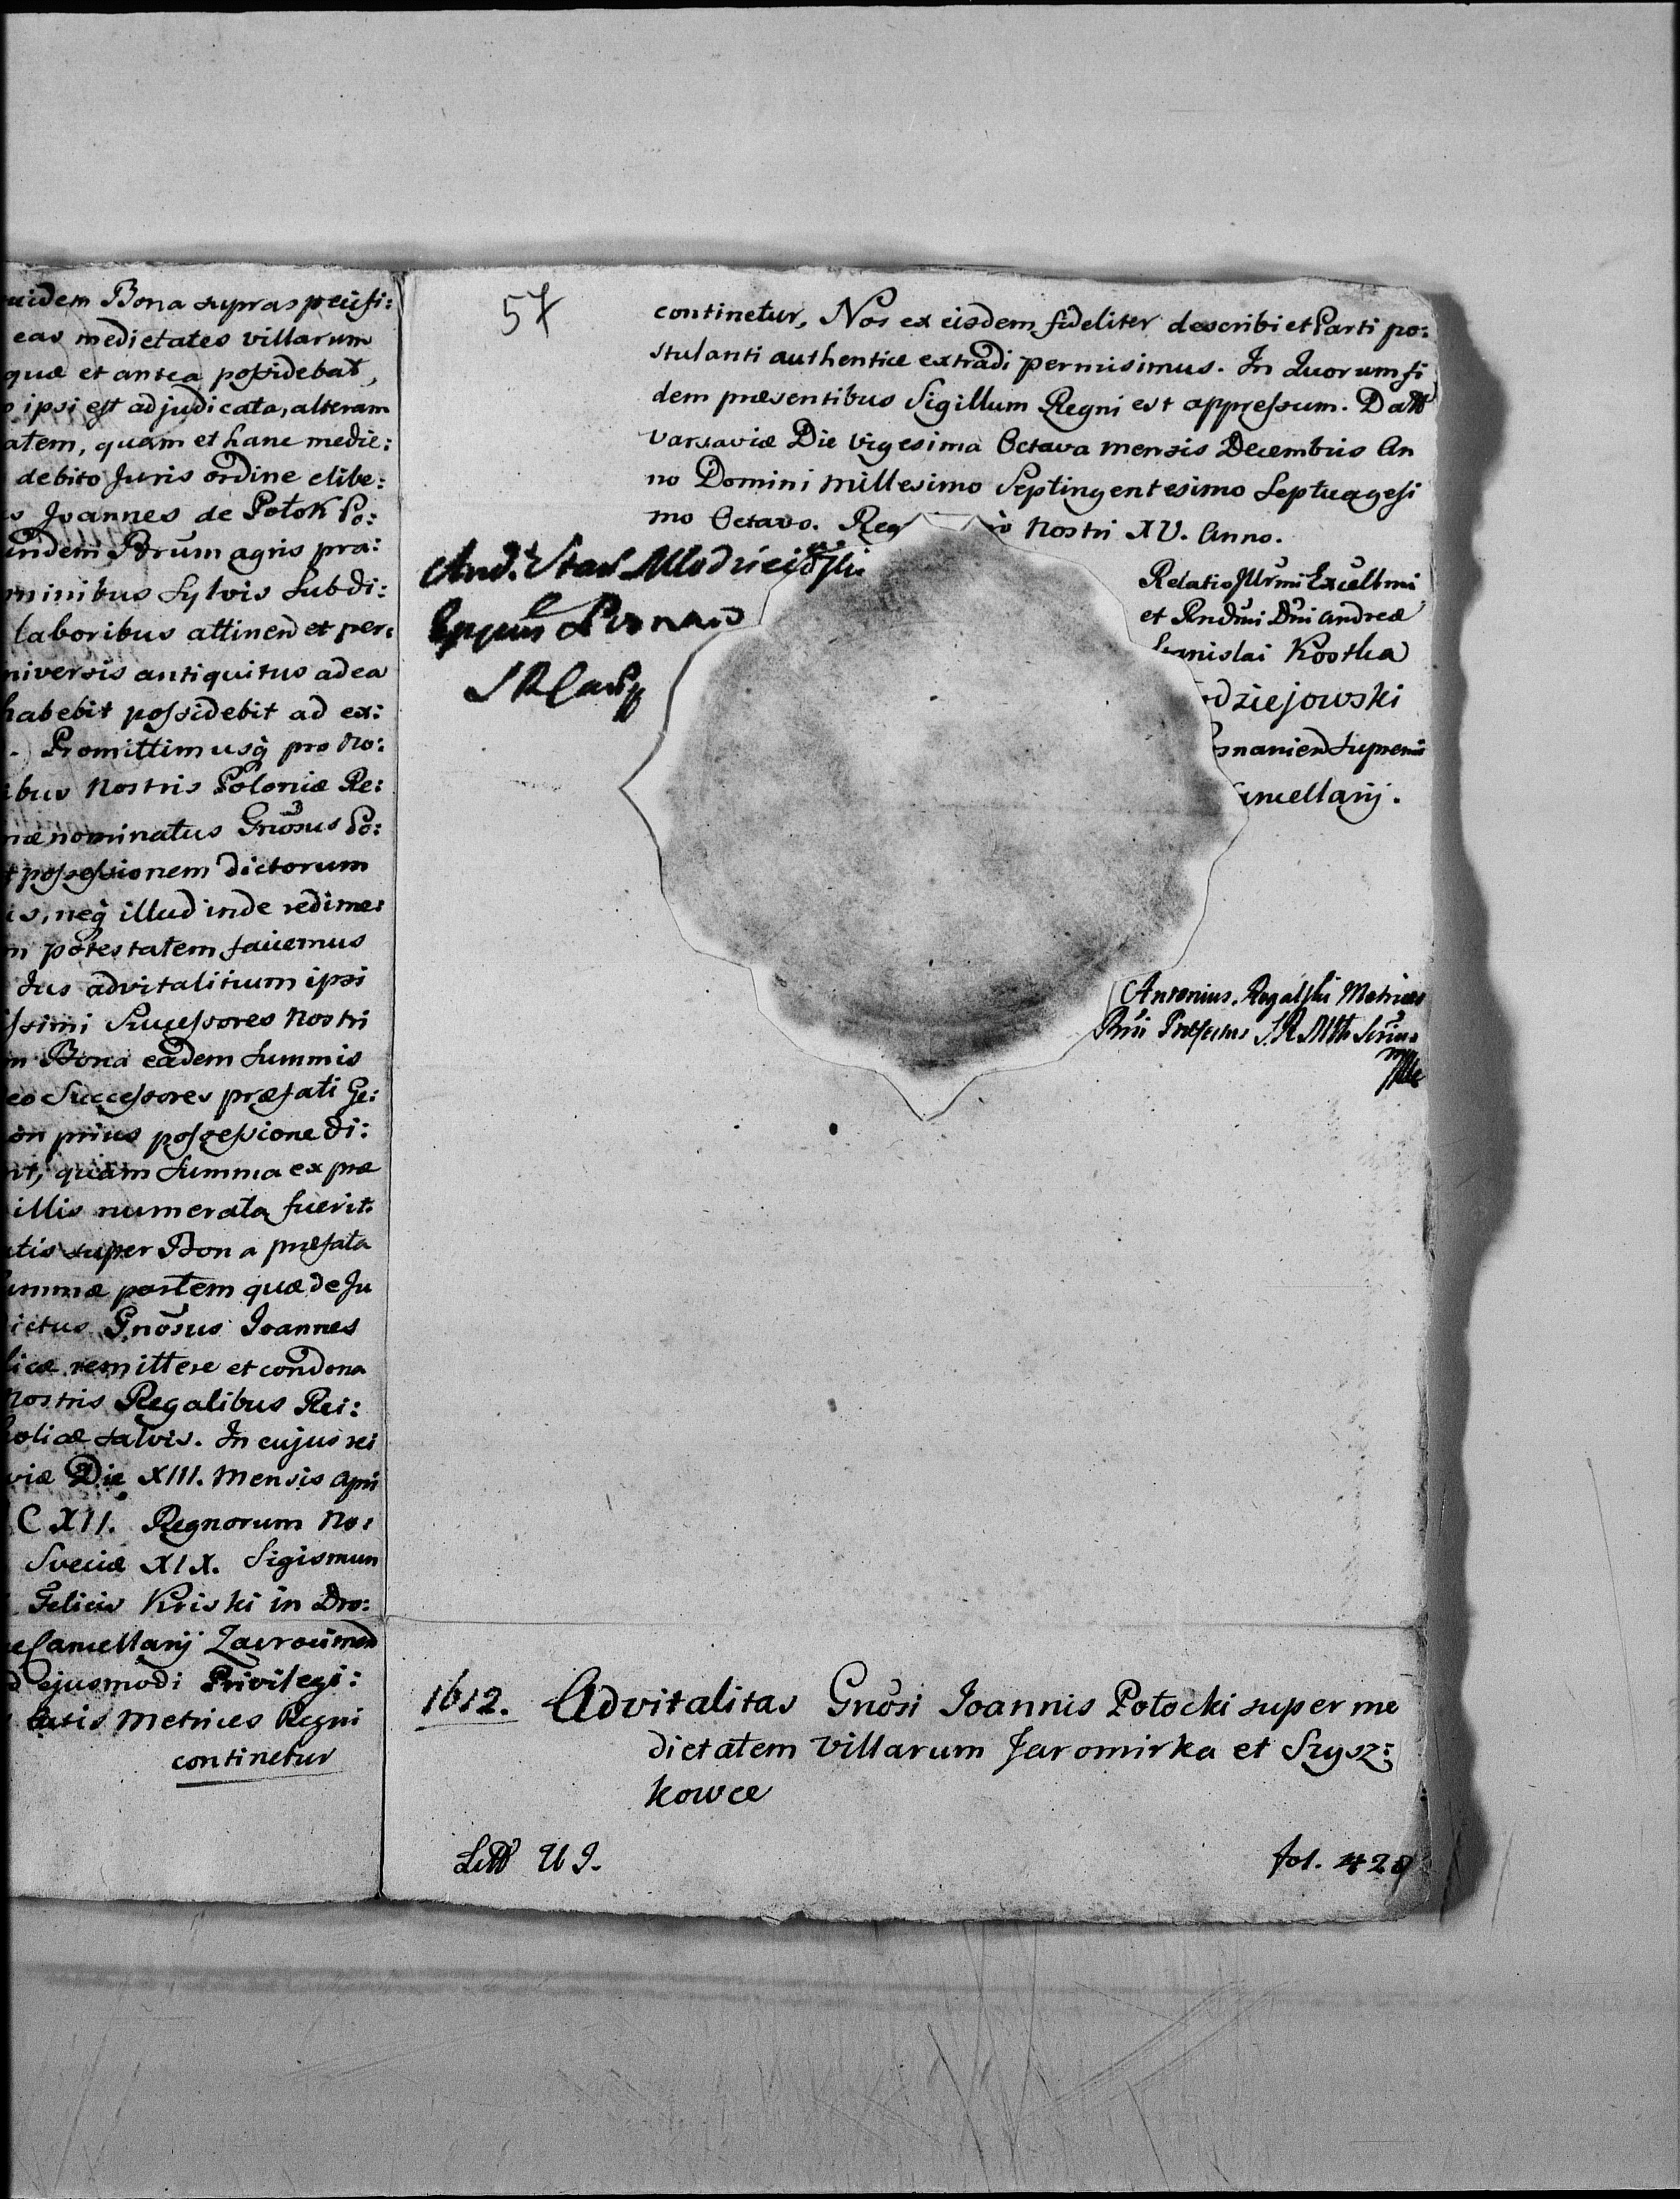 uidem Bona supraspecifi:
eas medietates villarum
quæ et antea possidebat,
ipsi est adjudicata, alteram
atem, quam et hanc medie:
debito Juris ordine elibe:
s Joannes de Potok Po:
undem Porum agris pra:
minibus Sylvis Subdi:
laboribus attinen et per:
niversis antiquitus ad ea
habebit possidebit ad ex:
Promittimusq pro No:
ibus Nostris Poloniæ Re:
nænominatus Gnosus Po:
possessionem dictorum
is, neq illud inde redime:
m potestatem faciemus
Jus advitalitium ipsi
ssimi Successores Nostri
m Bona eadem Summis
eo Successores præfati Ge:
on prius possessione di:
nt, quam Summa ex præ
illis numerata fuerit.
atis super Bona præfata
ummæ partem quæ de Ju
ictus Gnosus Joannes
licæ remittere et condona
Nostris Regalibus Rei:
olicæ salvis. In cujus rei
viæ Die XIII. Mensis Apri
C XII. Regnorum No:
Sveciæ XIX. Sigismun
Felicis Kriski in Dro:
Cancellarij
ejusmodi Privilegi:
Actis Metrices Regni
continetur
57
continetur, Nos ex eisdem fideliter describi et Parti po:
stulanti authentice extradi permisimus. In Quorum fi
dem præsentibus Sigillum Regni est appressum. Datt
Varsaviæ Die Vigesima Octava mensis Decembris An
no Domini Millesimo Septingentesimo Septuagesi
mo Octavo. Reg Nostri XV. Anno.
And. Stan Młodzieiowski
Eppus Posnan
Relatio Illrmi Excellmi
et Rndmi Dni Andreæ
Stanislai Kostka
odziejowski
snanien Supremi
ancellarij.
Antonius Rogalski Metrices
Rni Præfectus S. R. Mttis
1612. Advitalitas Gnosi Joannis Potocki super me
dietatem Villarum Jaromirka et Szysz:
kowce
Litt UJ.
fol. 428